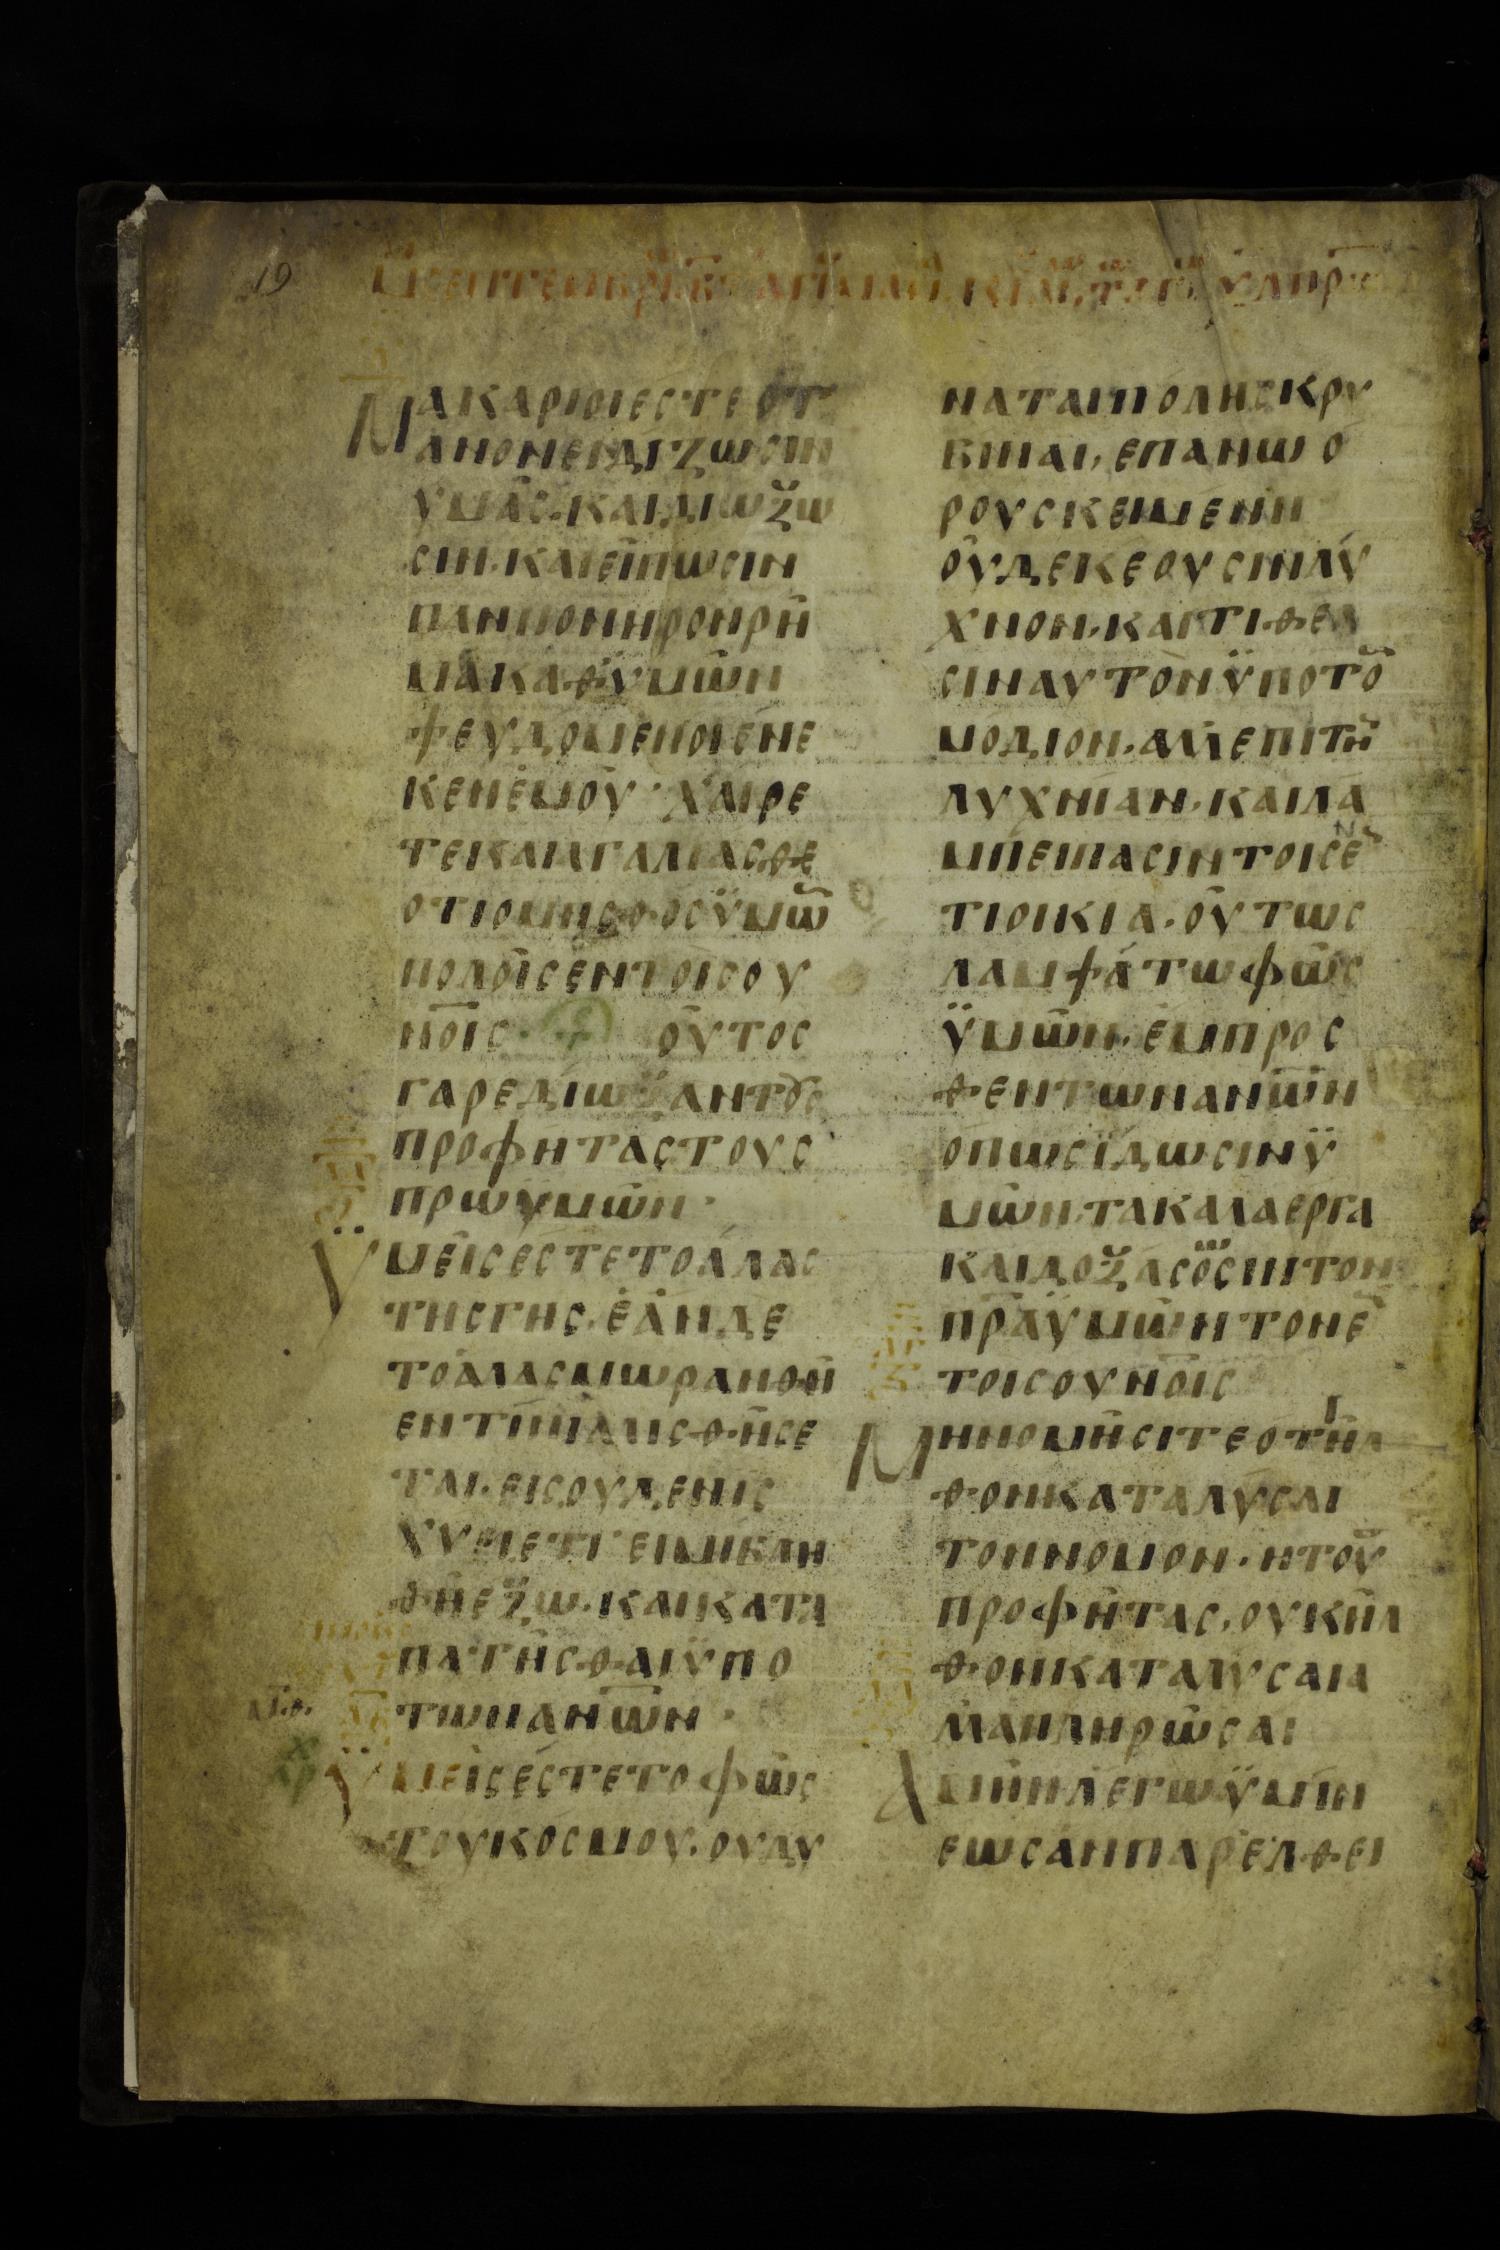 19
ΜΑΚΑΡΙΟΙΕСΤΕΟΤ
ΑΝΟΝΕΙΔΙΖΩСΙΝ
ΥΜΑС·ΚΑΙΔΙΩΞΩ
СΙΝ·ΚΑΙΕΙΠΩСΙΝ
ΠΑΝΠΟΝΗΡΟΝΡΗ
ΜΑΚΑΘΥΜΩΝ
ΨΕΥΔΟΜΕΝΟΙΕΝΕ
ΚΕΝΕΜΟΥ·ΧΑΙΡΕ
ΤΕΚΑΙΑΓΑΛΙΑСΘΕ
ΟΤΙΟΜΗСΘΟСΫΜΩ̄
ΠΟΛΟΙСΕΝΤΟΙСΟΥ
Ν̄ΟΙС· ΟΥΤΟС
ΓΑΡΕΔΙΩΞΑΝΤȢС
ΠΡΟΦΗΤΑСΤΟΥС
ΠΡΩΫΜΩΝ·
ΫΜΕΙСΕСΤΕΤΟΑΛΑС
ΤΗСΓΗС·ΕΑΝΔΕ
ΤΟΑΛΑСΜΩΡΑΝΘΗ
ΕΝΤΙΝΙΑΛΙСΘΗСΕ
ΤΑΙ·ΕΙСΟΥΔΕΝΙС
ΧΥΕΙΕΤΙ ΕΙΜΗΒΛΗ
ΘΗΕΞΩ·ΚΑΙΚΑΤΑ
ΠΑΤΗСΘΑΙΫΠΟ
ΤΩΝΑΝ̄ΩΝ·
ΫΜΕΙСΕСΤΕΤΟΦΩС
ΤΟΥΚΟСΜΟΥ·ΟΥΔΥ
ΝΑΤΑΙΠΟΛΗСΚΡΥ
ΒΙΝΑΙ·ΕΠΑΝΩΟ
ΡΟΥСΚΕΙΜΕΝΗ
ΟΥΔΕΚΕΟΥСΙΝΛΥ
ΧΝΟΝ·ΚΑΙΤΙΘΕΑ
СΙΝΑΥΤΟΝΫΠΟΤΟ̄
ΜΟΔΙΟΝ·ΑΛΛΕΠΙΤΗ̄
ΛΥΧΝΙΑΝ·ΚΑΙΛΑ
ΜΠΕΙΠΑСΙΝΤΟΙСΕΝ
ΤΙΟΙΚΙΑ·ΟΥΤΩС
ΛΑΜΨΑΤΩΦΩС
ΫΜΩΝ·ΕΜΠΡΟС
ΘΕΝΤΩΝΑΝ̄ΩΝ
ΟΠΩСΪΔΩСΙΝΫ
ΜΩΝ·ΤΑΚΑΛΑΕΡΓΑ
ΚΑΙΔΟΞΑСΟСΙΝΤΟΝ
Π̄ΡΑΫΜΩΝΤΟΝΕ̄
ΤΟΙСΟΥΝ̄ΟΙС
ΜΗΝΟΜΗСΙΤΕΟΤΙΗΛ
ΘΟΝΚΑΤΑΛΥСΑΙ
ΤΟΝΝΟΜΟΝ·ΗΤΟΥ
ΠΡΟΦΗΤΑС·ΟΥΚΗΛ
ΘΟΝΚΑΤΑΛΥСΑΙΑ
ΛΛΑΠΛΗΡΩСΑΙ
ΑΜΗΝΛΕΓΩΫΜΙΝ
ΕΩСΑΝΠΑΡΕΛΘΕΙ